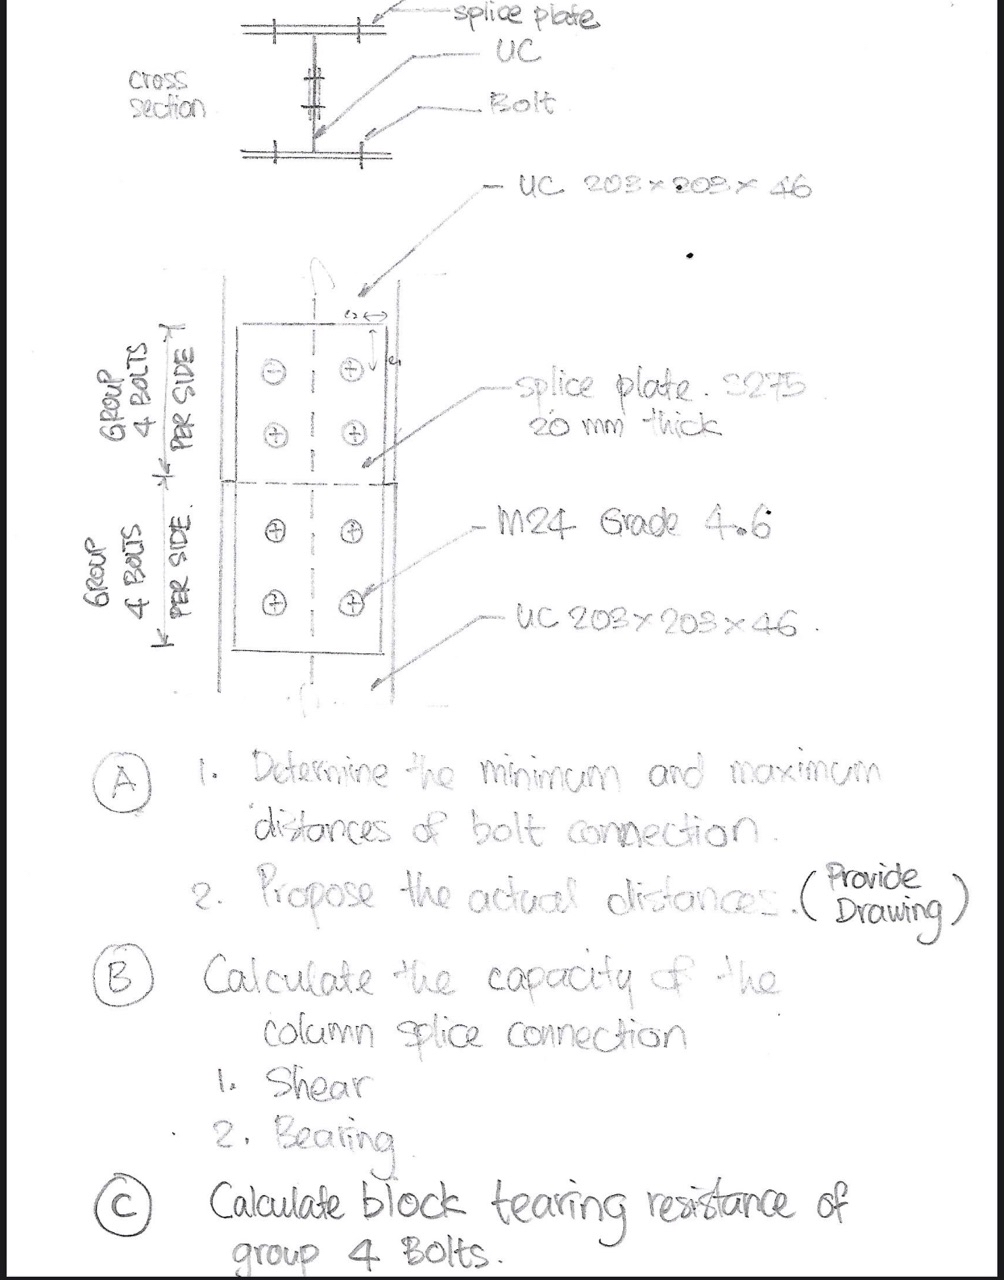 splice plate
UC
cross
section
Bolt
UC 203 x 203 x 46
e2
e1
GROUP
4 BOLTS
PER SIDE
splice plate. S275
20 mm thick
M24 Grade 4.6
GROUP
4 BOLTS
PER SIDE.
UC 203 x 203 x 46.
A 1. Determine the minimum and maximum
distances of bolt connection.
2. Propose the actual distances. (Provide
Drawing)
B Calculate the capacity of the
column splice connection
1. Shear
2. Bearing
C Calculate block tearing resistance of
group 4 Bolts.